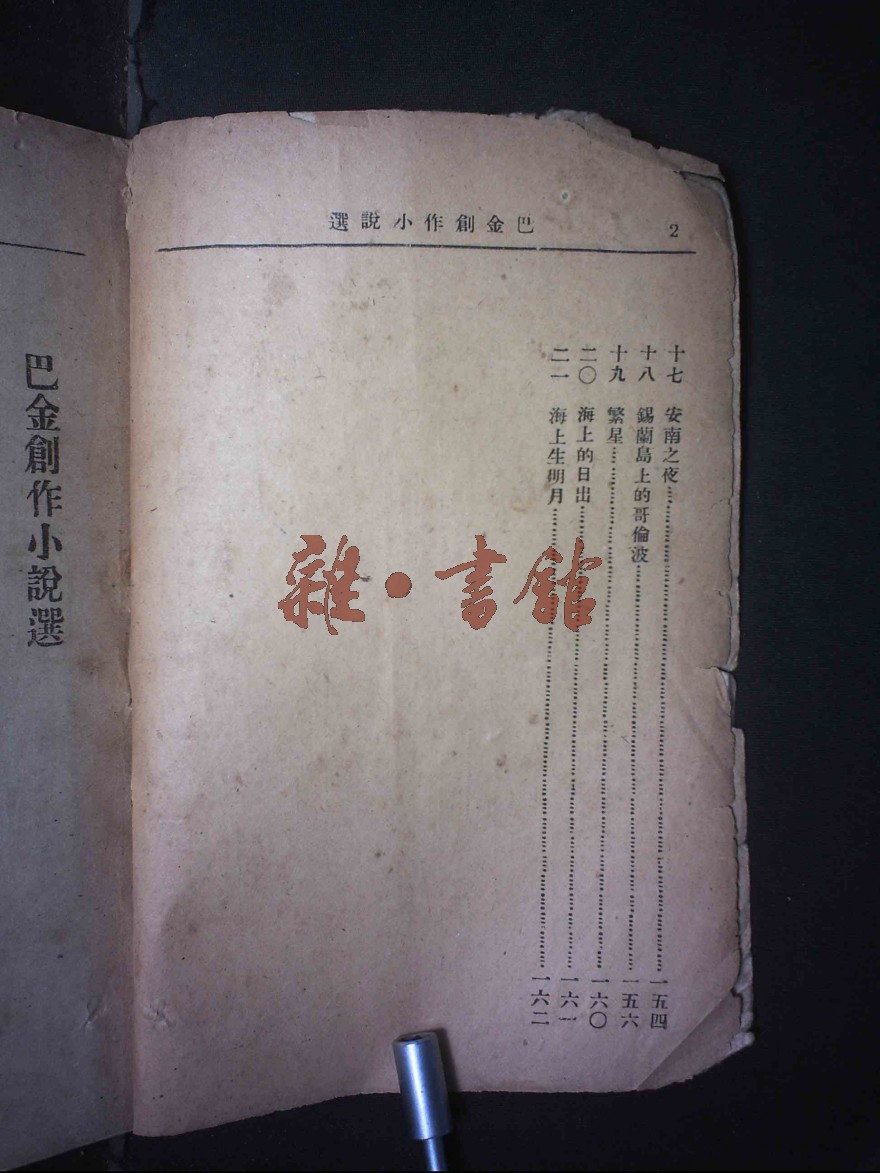 巴金創作小說選 2
十七 安南之夜…………一五四
十八 錫蘭島上的哥倫波…………一五六
十九 繁星…………一六〇
二〇 海上的日出…………一六一
二一 海上生明月…………一六二
巴金創作小說選
雜·書館